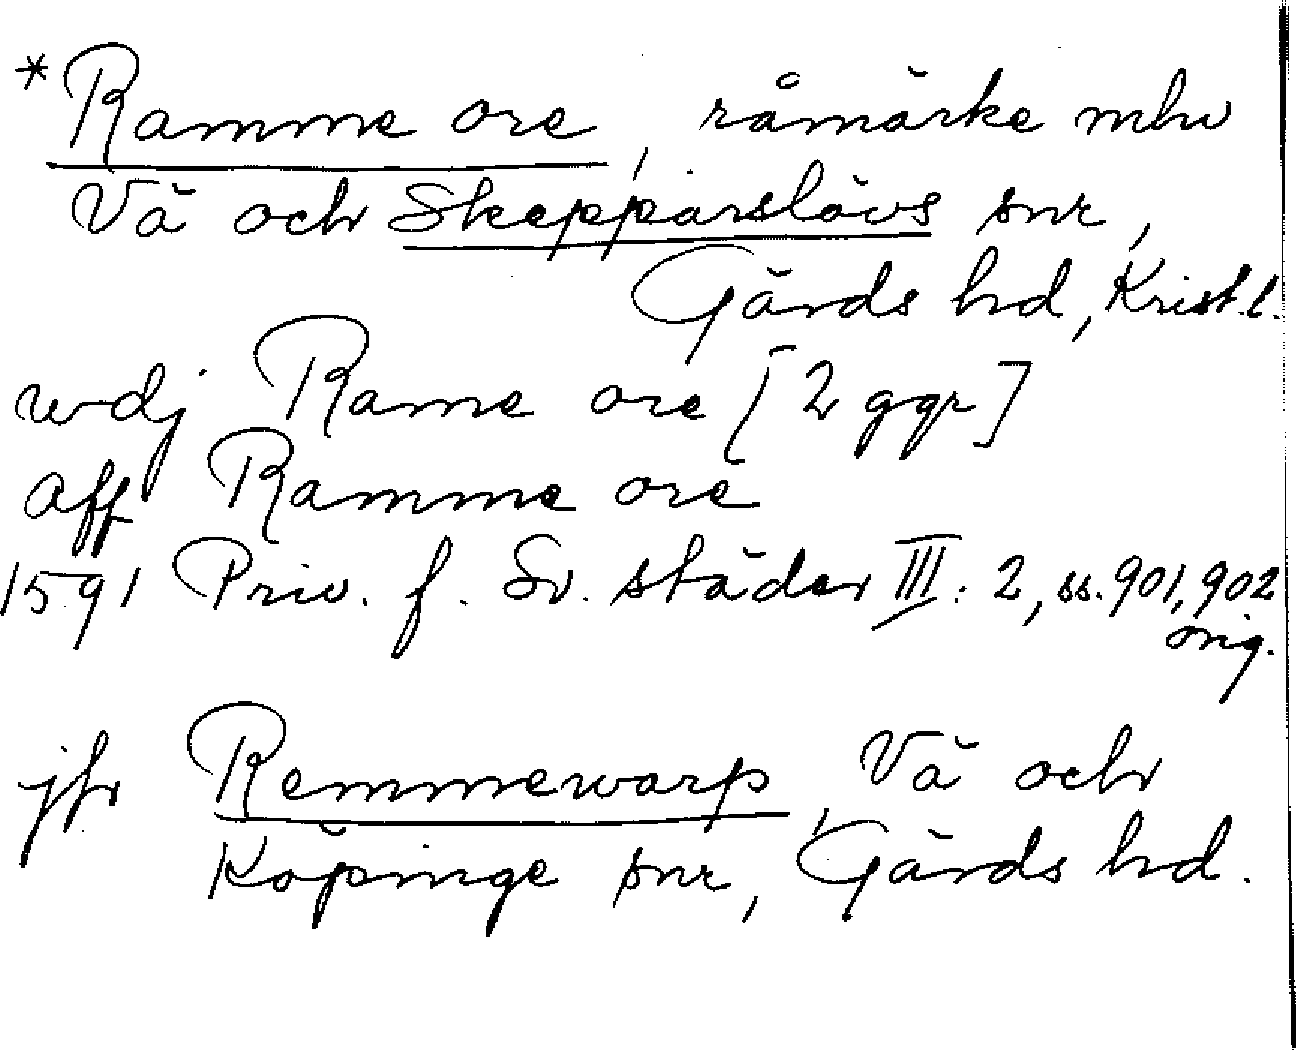 *Ramme ore, råmärke mlu
Vä och Skepparslövs snr,
Gärds hd, Krist.l.
wdj Rame ore [2 ggr]
aff Ramme ore
1591 Priv. f. Sv. städer III: 2, ss. 901, 902
orig.
jfr Remmewarp, Vä och
Köpinge snr, Gärds hd.